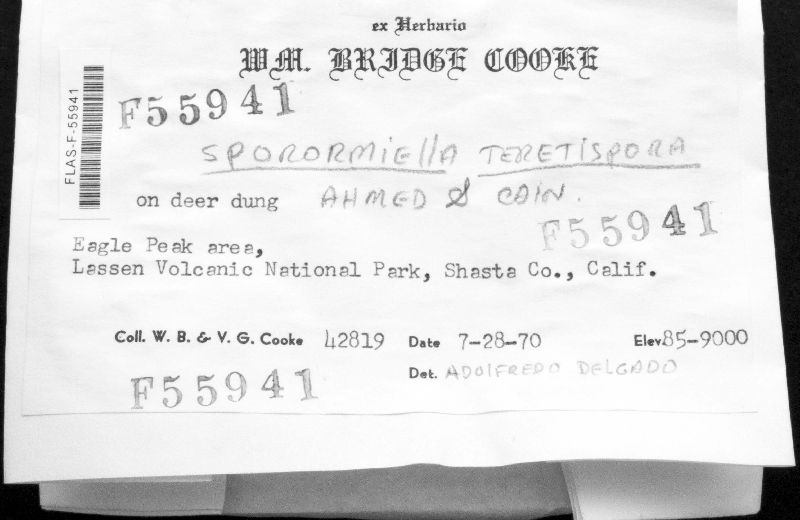 ex Herbario
WM. BRIDGE COOKE
FLAS-F-55941
F55941
SPORORMIEllA TERETISPORA
on deer dung AHMED & CAIN.
F55941
Eagle Peak area,
Lassen Volcanic National Park, Shasta Co., Calif.
Coll. W. B. & V. G. Cooke 42819 Date 7-28-70 Elev85-9000
Det. ADOlFREDO DELGADO
F55941